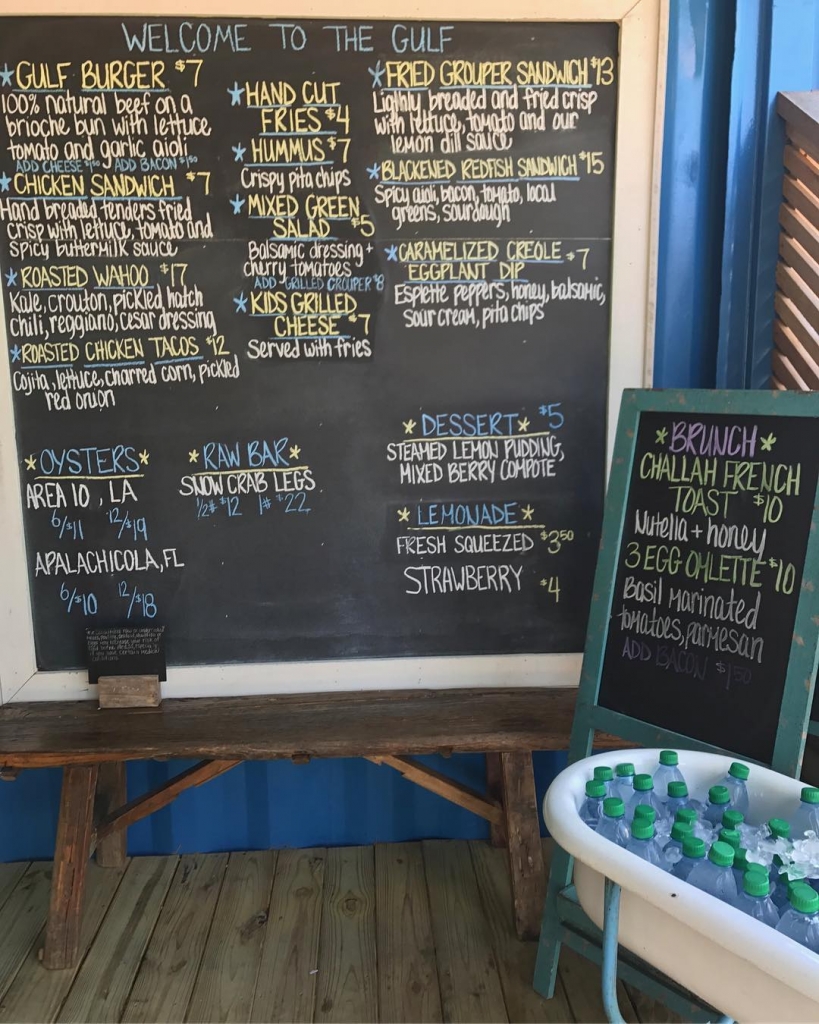 WELCOME TO THE GULF
*GULF BURGER $7
100% natural beef on a
brioche bun with lettuce
tomato and garlic aioli
ADD CHEESE $1.50 ADD BACON $1.50
*CHICKEN SANDWICH $7
Hand breaded tenders fried
crisp with lettuce, tomato and
spicy buttermilk sauce
*ROASTED WAHOO $17
Kale, crouton, pickled hatch
chili, reggiano, cesar dressing
*ROASTED CHICKEN TACOS $12
Cojita, lettuce, charred corn, pickled
red onion
*HAND CUT
FRIES $4
*HUMMUS $7
Crispy pita chips
*MIXED GREEN
SALAD $5
Balsamic dressing +
cherry tomatoes
ADD GRILLED GROUPER $8
*KIDS GRILLED
CHEESE $7
Served with fries
*FRIED GROUPER SANDWICH $13
Ligthly breaded and fried crisp
with lettuce, tomato and our
lemon dill sauce
*BLACKENED REDFISH SANDWICH $15
Spicy aioli, bacon, tomato, local
greens, sourdough
*CARAMELIZED CREOLE $7
EGGPLANT DIP
Esplette peppers, honey, balsamic,
sour cream, pita chips
*OYSTERS*
AREA 10, LA
6/$11 12/$19
APALACHICOLA, FL
6/$10 12/$18
*RAW BAR*
SNOW CRAB LEGS
1/2# $12 1# $22
*DESSERT* $5
STEAMED LEMON PUDDING,
MIXED BERRY COMPOTE
*LEMONADE*
FRESH SQUEEZED $3.50
STRAWBERRY $4
*BRUNCH*
CHALLAH FRENCH
TOAST $10
Nutella + honey
3 EGG OMLETTE $10
Basil marinated
tomatoes, parmesan
ADD BACON $1.50